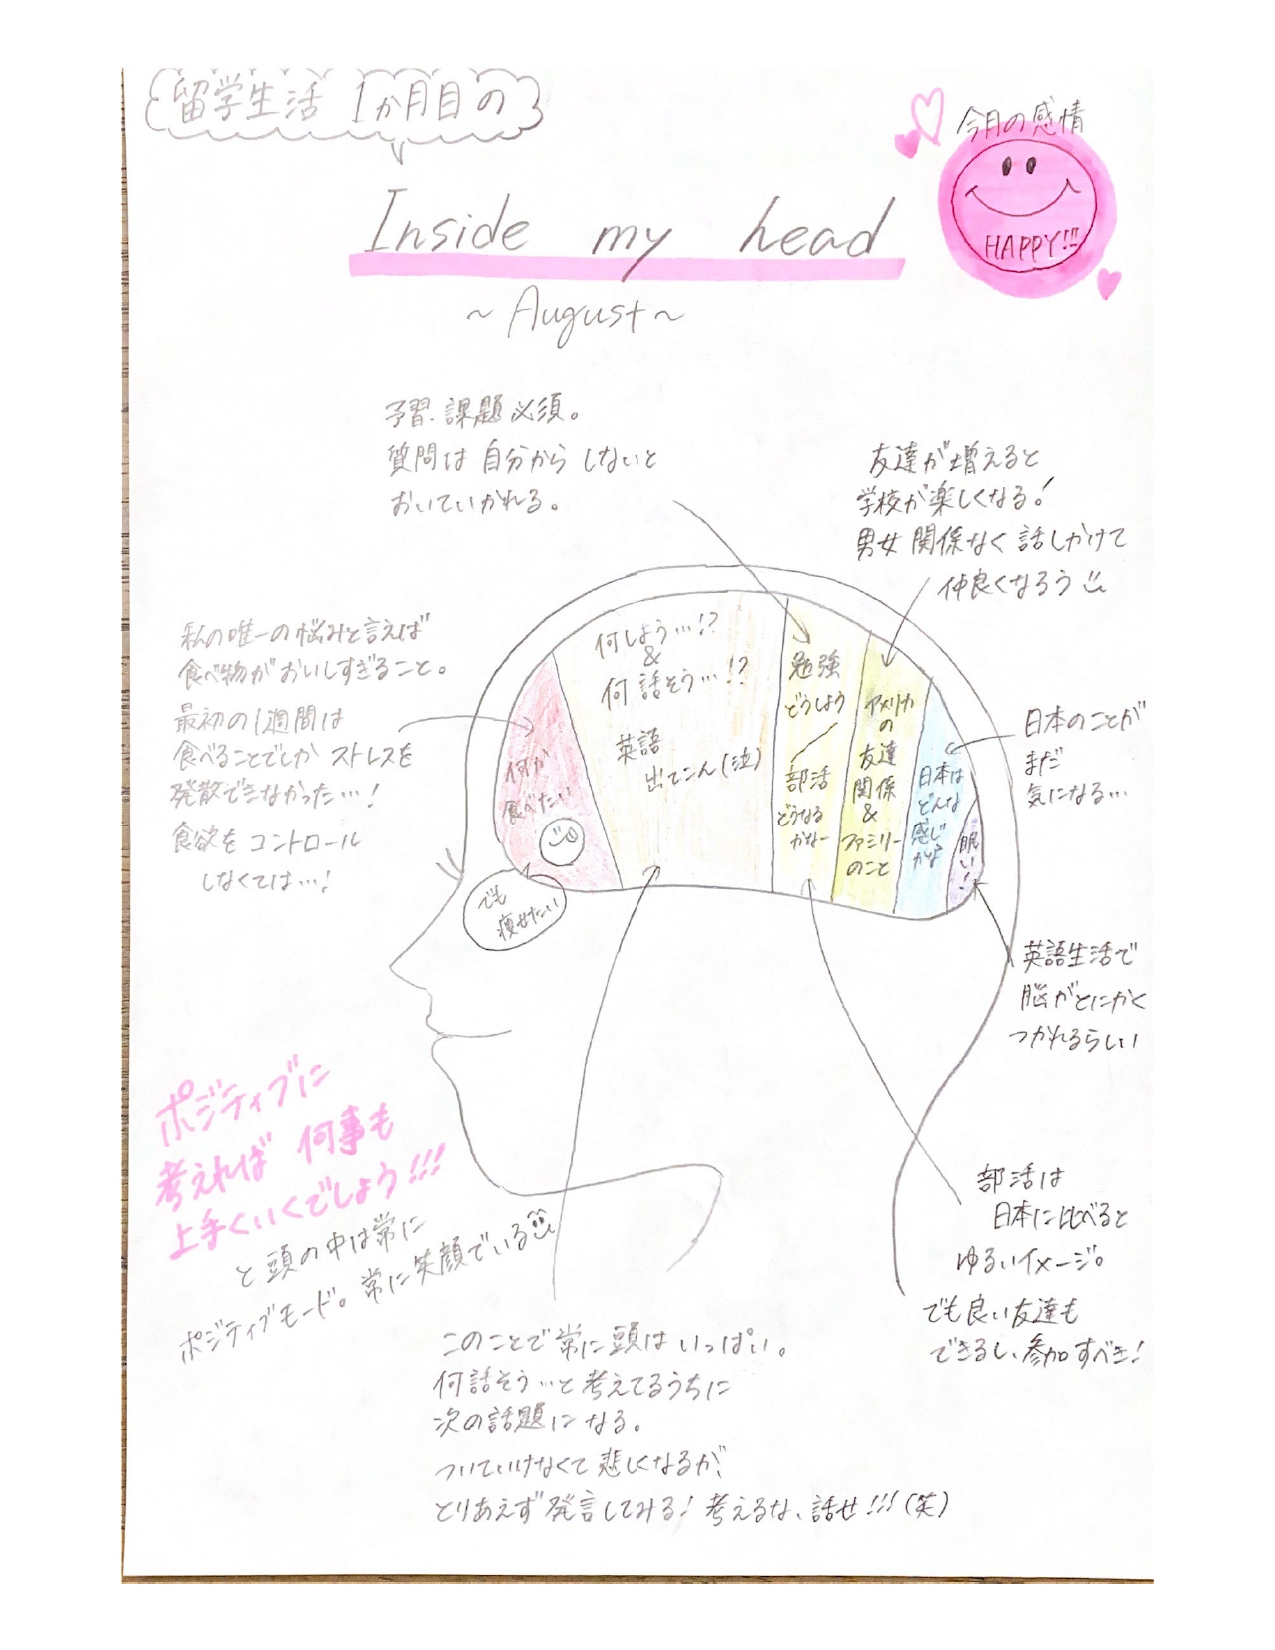 留学生活 1か月目の
Inside my head
~August~
今月の感情
HAPPY!!!
予習.課題必須。
質問は自分からしないと
おいていかれる。
友達が増えると
学校が楽しくなる!
男女関係なく話しかけて
仲良くなろう
私の唯一の悩みと言えば
食べ物がおいしすぎること。
最初の1週間は
食べることでしかストレスを
発散できなかった…!
食欲をコントロール
しなくては…!
何か
食べたい
でも
痩せたい
何しよう…!?
&
何話そう…!?
英語
出てこん(泣)
勉強
どうしよう
部活
どうなる
かなー
アメリカ
の
友達
関係
&
ファミリー
のこと
日本は
どんな
感じ
かな
眠い!
日本のことが
まだ
気になる…
英語生活で
脳がとにかく
つかれるらしい
部活は
日本に比べると
ゆるいイメージ。
でも良い友達も
できるし、参加すべき!
ポジティブに
考えれば何事も
上手くいくでしょう!!!
と頭の中は常に
ポジティブモード。常に笑顔でいる
このことで常に頭はいっぱい。
何話そう…と考えてるうちに
次の話題になる。
ついていけなくて悲しくなるが、
とりあえず発言してみる!考えるな、話せ!!!(笑)